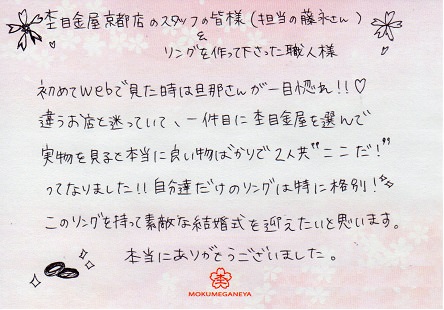 杢目金屋京都店のスタッフの皆様(担当の藤永さん)
&
リングを作って下さった職人様
初めてwebで見た時は旦那さんが一目惚れ!!♡
違うお店と迷っていて、一件目に杢目金屋を選んで
実物を見ると本当に良い物ばかりで2人共"ここだ!"
ってなりました!!自分達だけのリングは特に格別!
このリングを持って素敵な結婚式を迎えたいと思います。
本当にありがとうございました。
杢
MOKUMEGANEYA